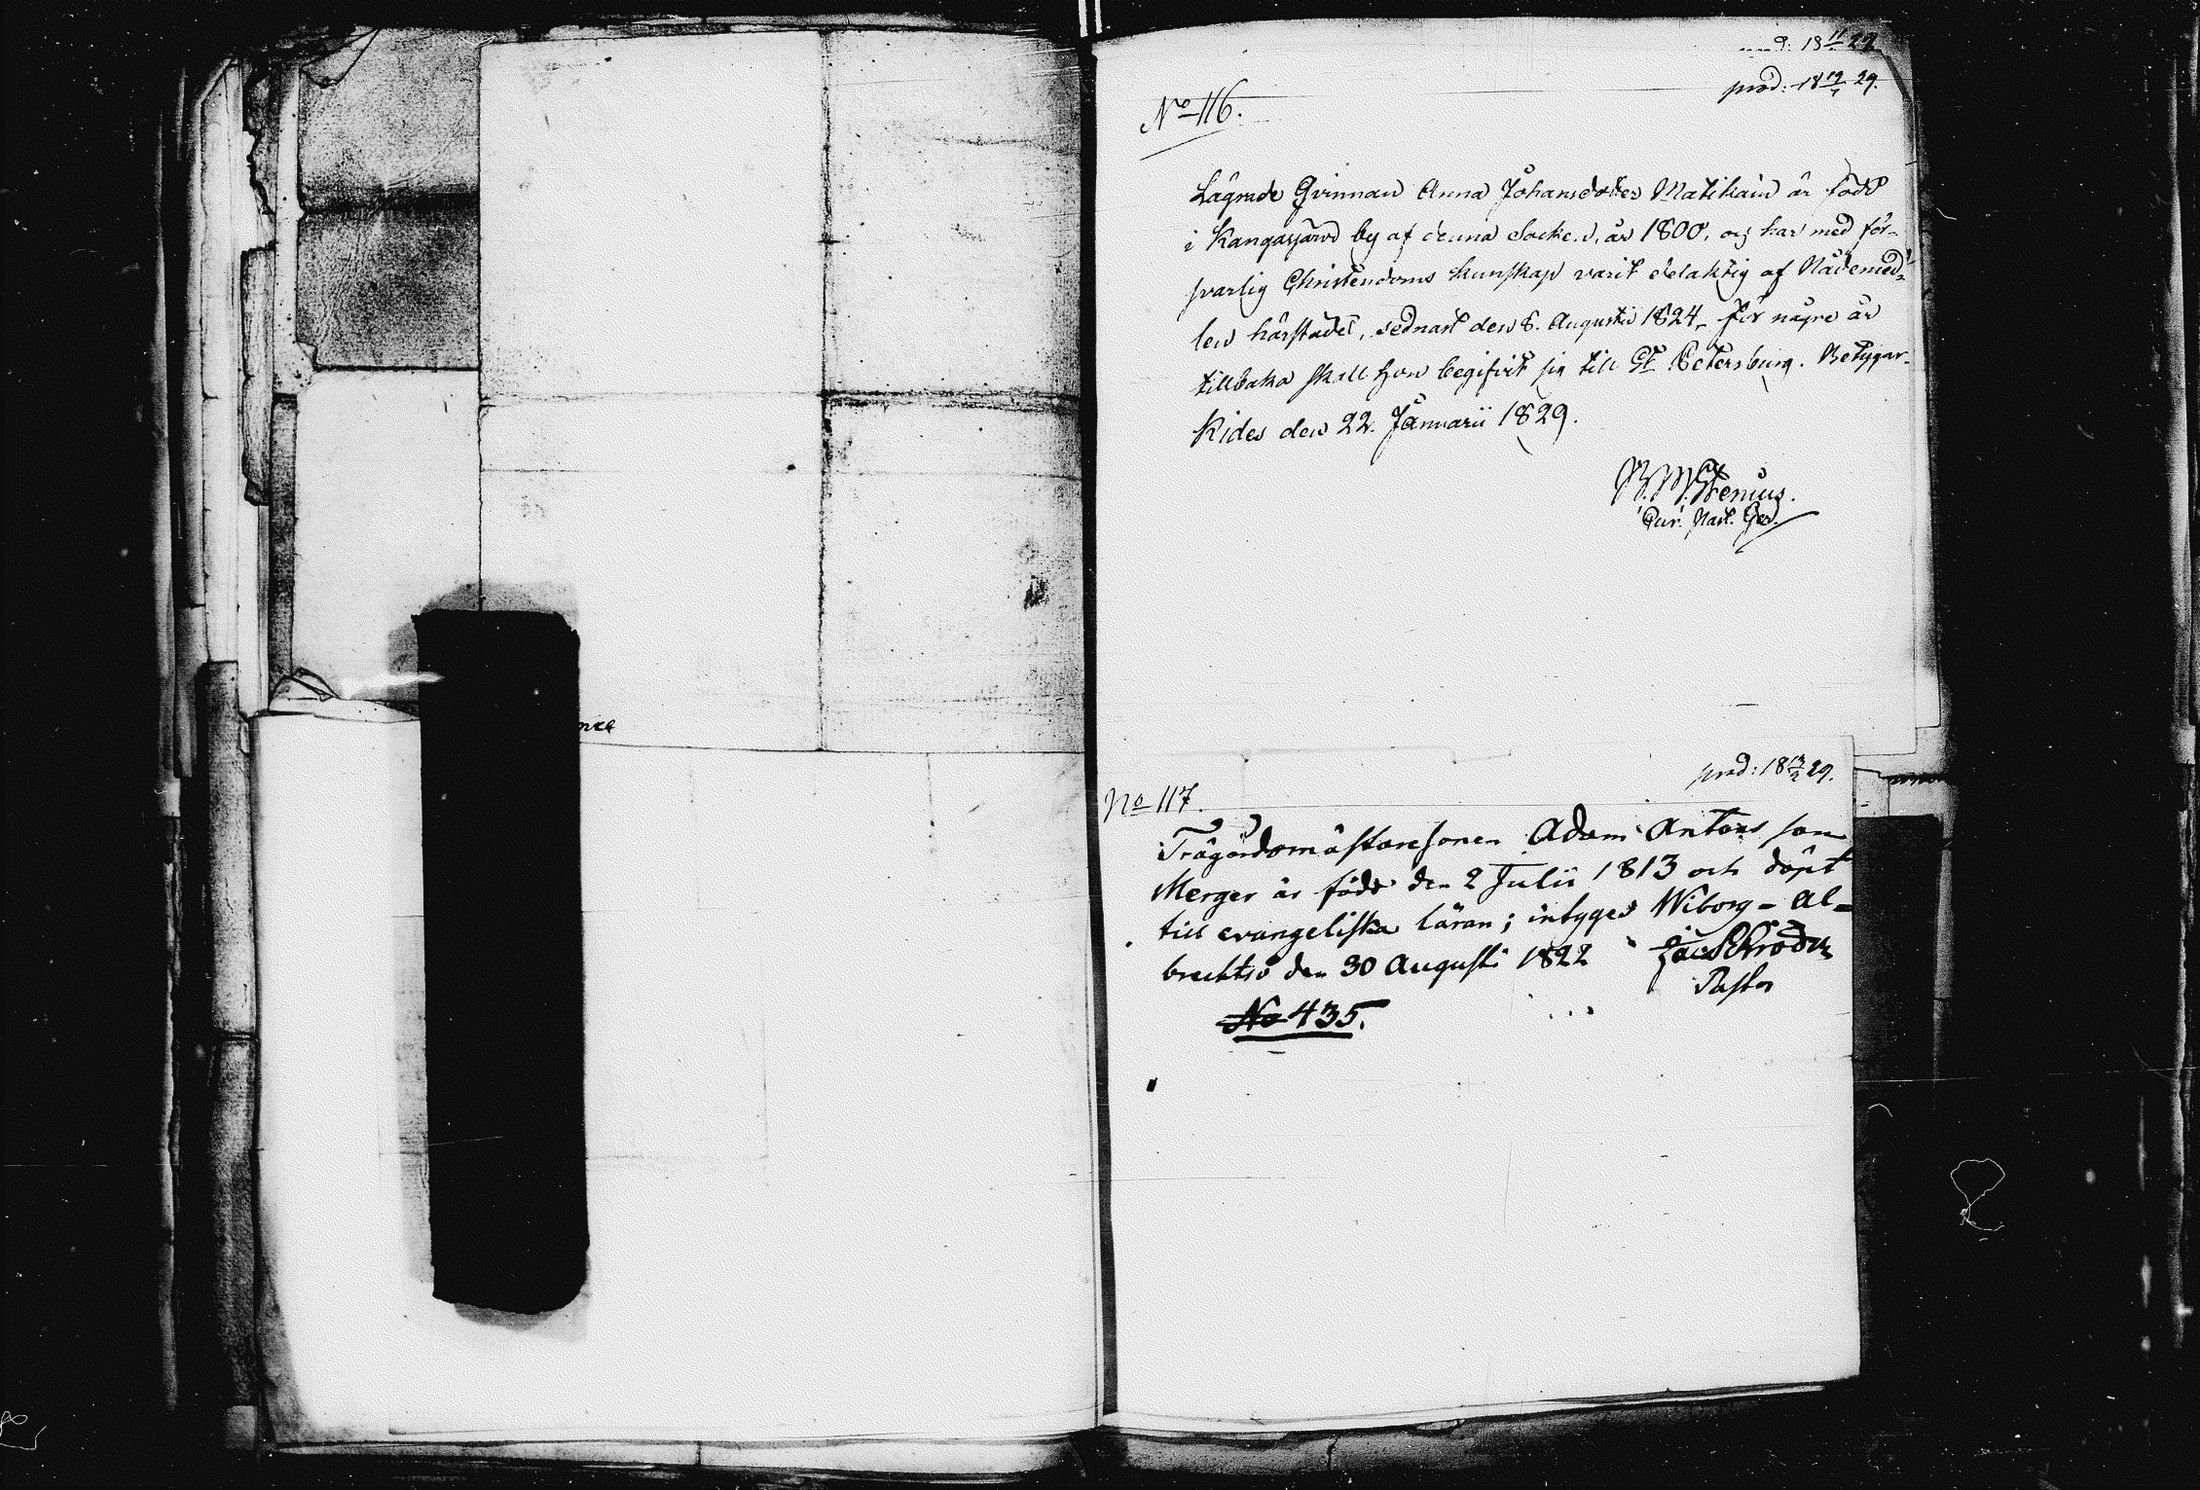 prod: 18 12/2 29.
No 116.
Lägrade Qvinnan Anna Johansdotter Matikain är född
i Kangasjärvi by af denna Socken, år 1800, och har med för-
svarlig Christendoms kunskap varit delaktig af Nådemed-
len härstädes, sednast den 8. Augusti 1824. för några år
tillbaka skall hon begifvit sig till St Petersburg. Betygar.
Kides den 22. Januarii 1829.
Past.
nre
prod: 18 13/2 29.
No 117.
Trägårdsmästaresonen Adam Antons son
Merger är född den 2 Julii 1813 och döpt
till evangeliska läran; intygas Wiborg-Al=
den 30 Augusti 1822
Pastor
No 435.